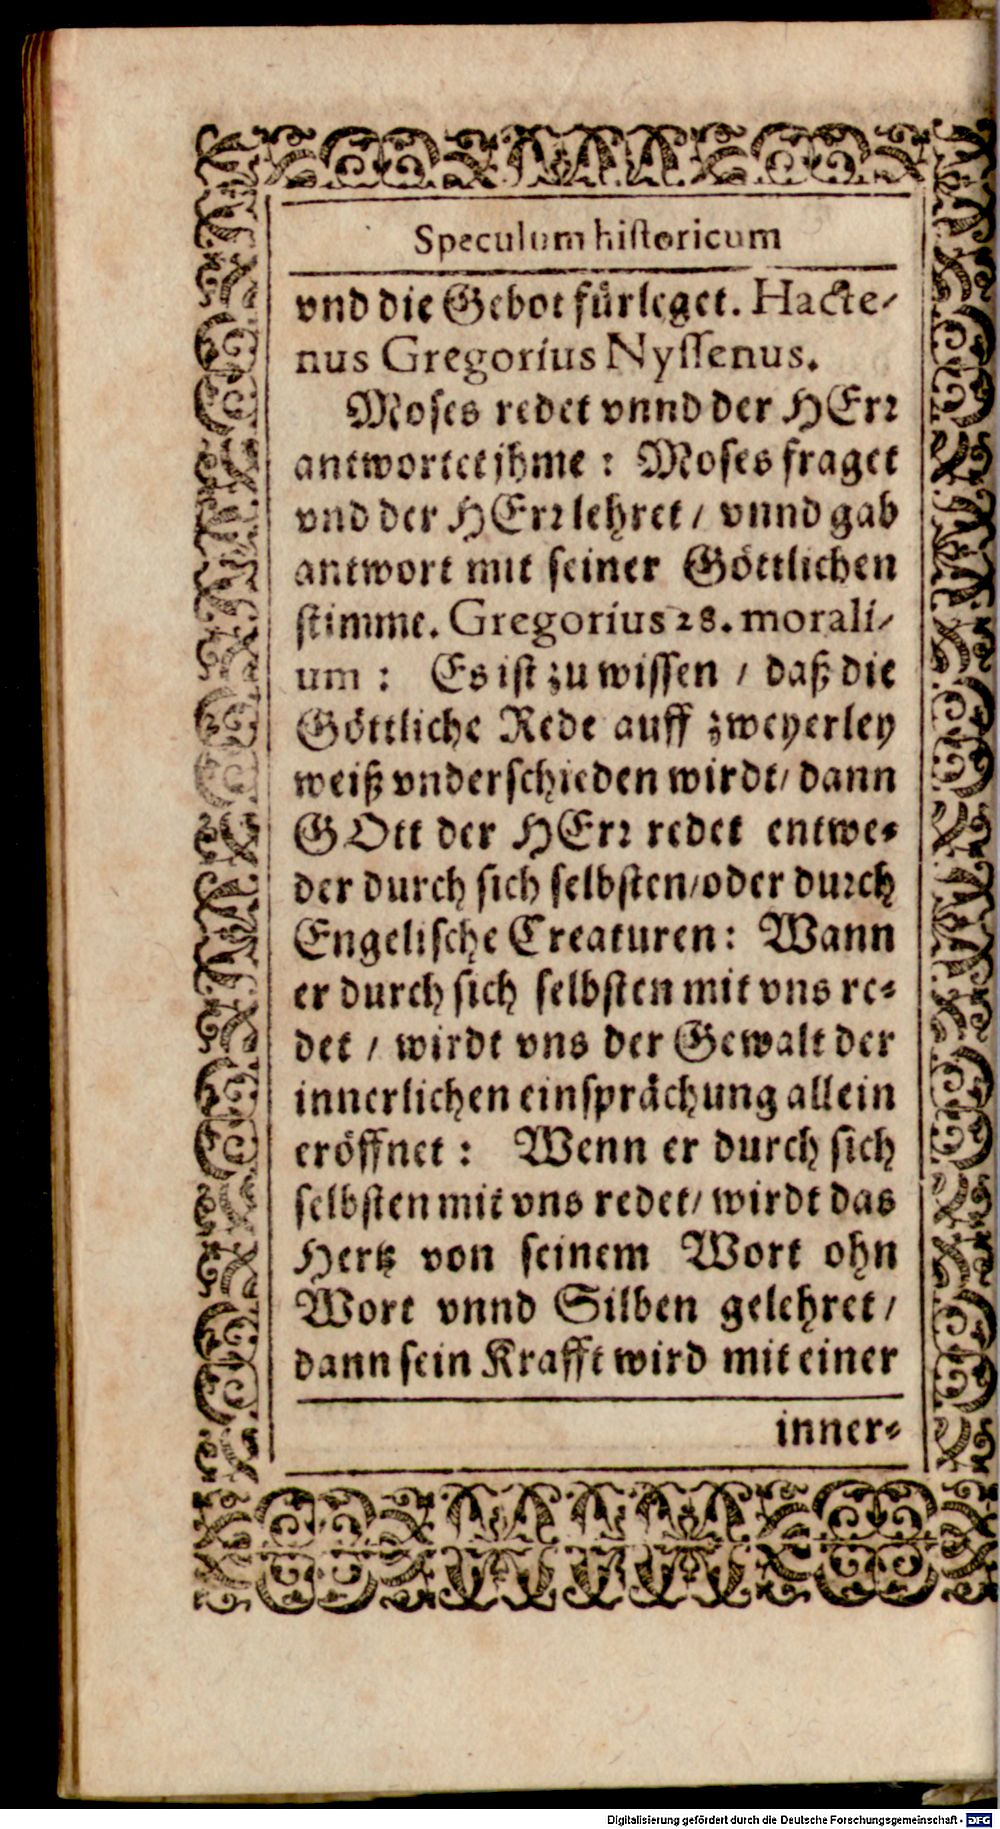 Speculum historicum
vnd die Gebot fürleget. Hacte-
nus Gregorius Nyssenus.
Moses redet vnnd der HErr
antwortet jhme: Moses fraget
vnd der HErr lehret / vnnd gab
antwort mit seiner Göttlichen
stimme. Gregorius 28. morali-
um: Es ist zu wissen / daß die
Göttliche Rede auff zweyerley
weiß vnderschieden wirdt / dann
GOtt der HErr redet entwe-
der durch sich selbsten / oder durch
Engelische Creaturen: Wann
er durch sich selbsten mit vns re-
det / wirdt vns der Gewalt der
innerlichen einsprächung allein
eröffnet: Wenn er durch sich
selbsten mit vns redet / wirdt das
Hertz von seinem Wort ohn
Wort vnnd Silben gelehret /
dann sein Krafft wird mit einer
inner-
Digitalisierung gefördert durch die Deutsche Forschungsgemeinschaft - DFG